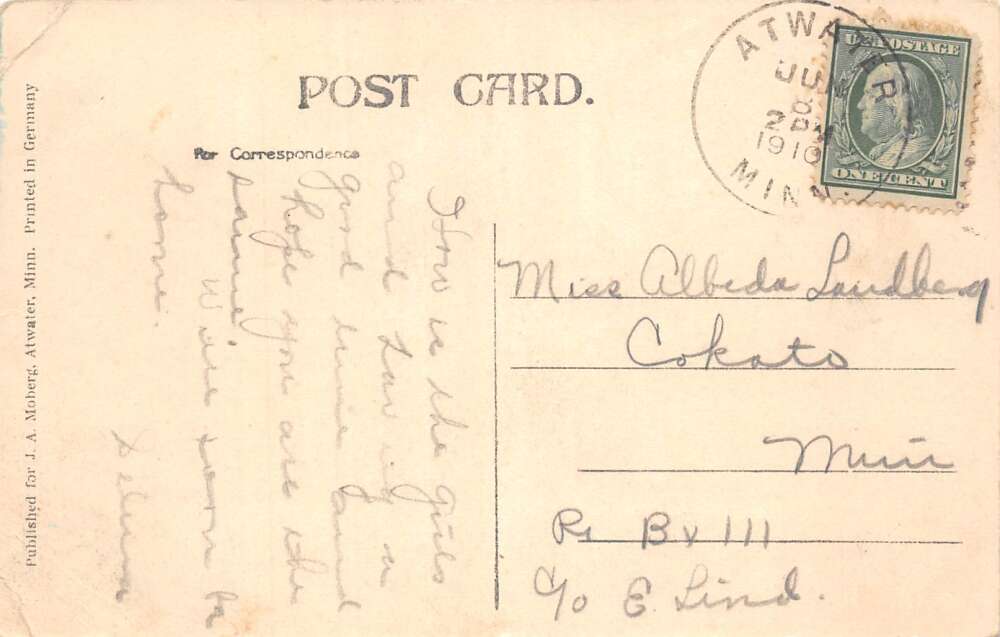 POST CARD.
For Correspondence
ATWATER
JUN
8
2 PM
1910
MINN.
U.S. POSTAGE
ONE CENT
How is the girls
and having a
good time and
hope you are the
same.
Will soon be
home.
Selma
Miss Albeda Lundberg
Cokato
Minn
R1 Bx 111
c/o E. Lind.
Published for J. A. Moberg, Atwater, Minn. Printed in Germany